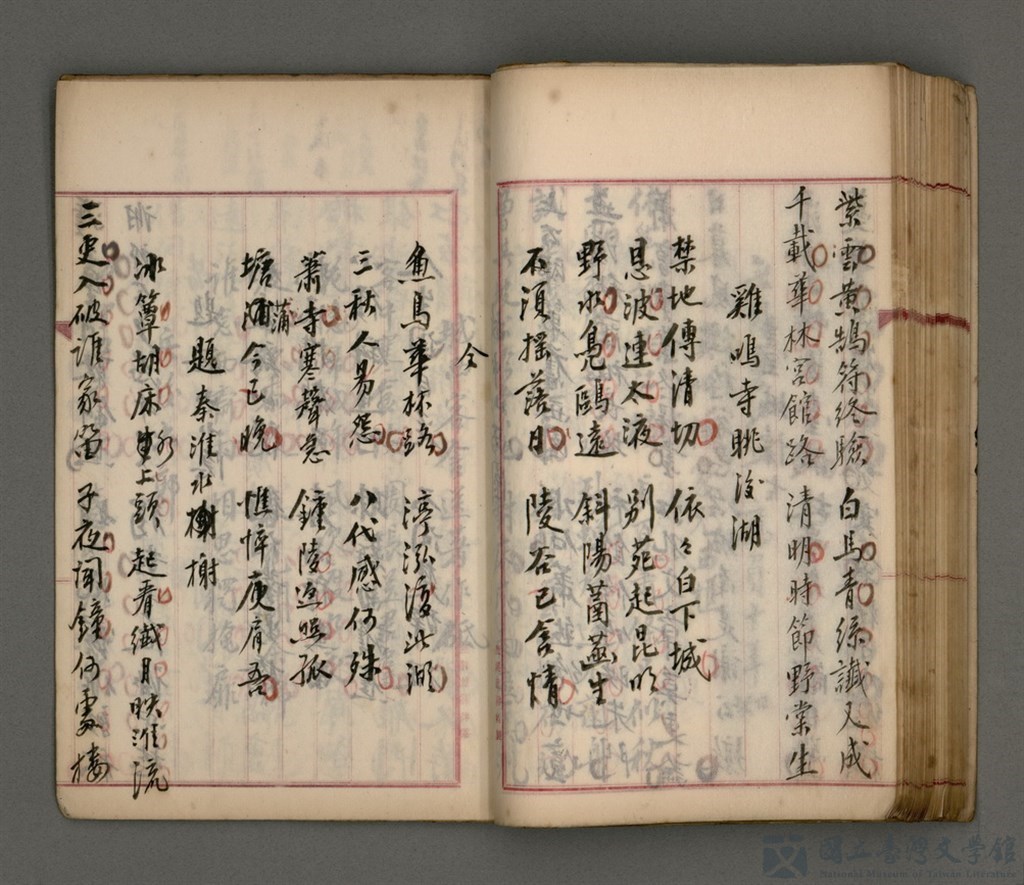 紫雲黃鵠符終驗　白馬青絲讖又成
千載華林宮館路　清明時節野棠生
雞鳴寺眺後湖
禁地傳清切　依々白下城
恩波連太液　別苑起昆明
野水鳧鷗遠　斜陽菡萏生
不須搖落日　陵谷已含情
仝
魚鳥華林路　渟泓復此湖
三秋人易怨　八代感何殊
蕭寺寒聲急　鍾陵返照孤
塘蒲今已晚　憔悴庾肩吾
題秦淮水榭
冰簟胡床水上頭　起看纖月映淮流
三更入破誰家笛　子夜聞鐘何處樓
國立臺灣文學館
National Museum of Taiwan Literature